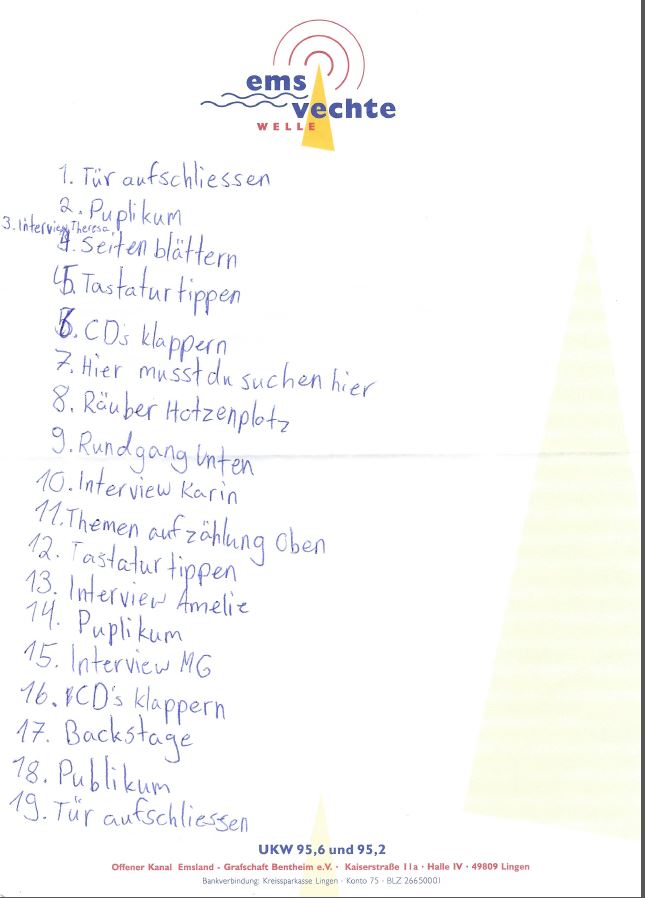 ems
vechte
WELLE
1. Tür aufschliessen
2. Puplikum
3. Interview Theresa
4. Seiten blättern
5. Tastatur tippen
6. CD's klappern
7. Hier musst du suchen hier
8. Räuber Hotzenplotz
9. Rundgang Unten
10. Interview Karin
11. Themen aufzählung Oben
12. Tastatur tippen
13. Interview Amelie
14. Puplikum
15. Interview MG
16. CD's klappern
17. Backstage
18. Publikum
19. Tür aufschliessen
UKW 95,6 und 95,2
Offener Kanal Emsland - Grafschaft Bentheim e.V. · Kaiserstraße 11a · Halle IV · 49809 Lingen
Bankverbindung: Kreissparkasse Lingen · Konto 75 · BLZ 26650001